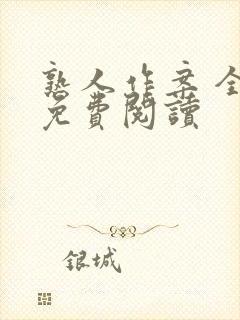 熟人作案全
免費閱讀
銀城